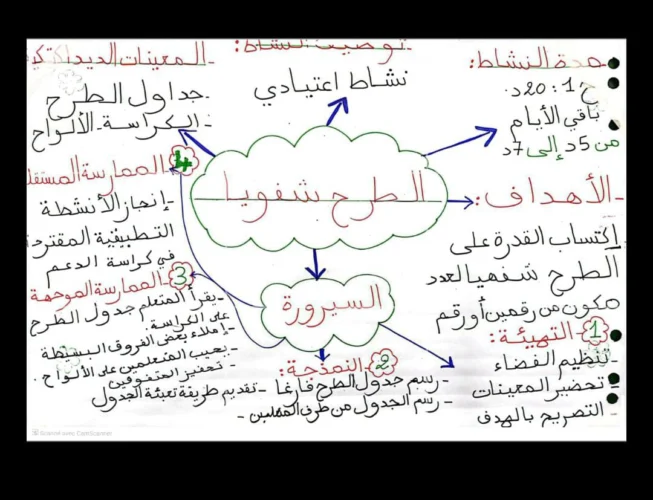 -مدة النشاط:
ح 1: 20د.
باقي الأيام
من 5د إلى 7د
توصيف النشاط:
نشاط اعتيادي
-المعينات الديداكتيكية
-جداول الطرح
-الكراسة-الألواح
الطرح شفويا
-الأهداف:
إكتساب القدرة على
الطرح شفهيا لعدد
مكون من رقمين أو رقم
السيرورة
1-التهيئة:
-تنظيم الفضاء
-تحضير المعينات
-التصريح بالهدف
2-النمذجة:
-رسم جدول الطرح فارغا
-رسم الجدول من طرف المتعلمين-
-تقديم طريقة تعبئة الجدول
3-الممارسة الموجهة
-يقرأ المتعلم جدول الطرح
على الكراسة.
-إملاء بعض الفروق البسيطة
-يجيب المتعلمين على الألواح.
-تحفيز المتفوقين
4-الممارسة
-إنجاز الأنشطة
التطبيقية
في كراسة الدعم
Scanned with CamScanner